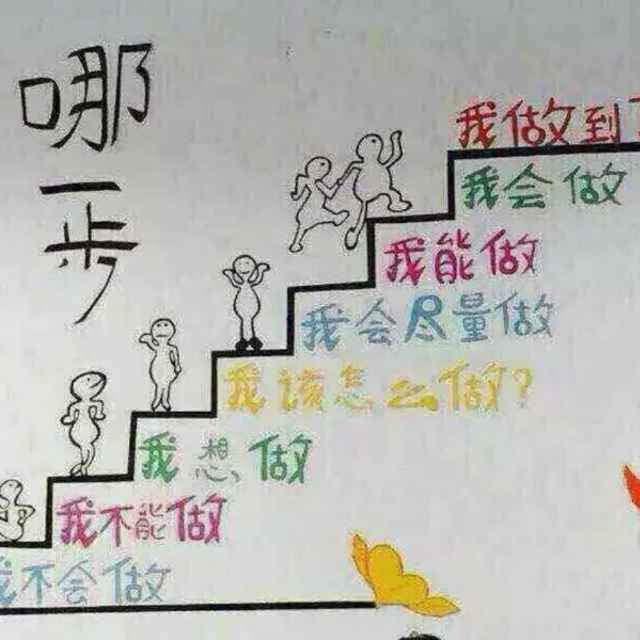 哪一步
我做到了
我会做
我能做
我会尽量做
我该怎么做?
我想做
我不能做
我不会做